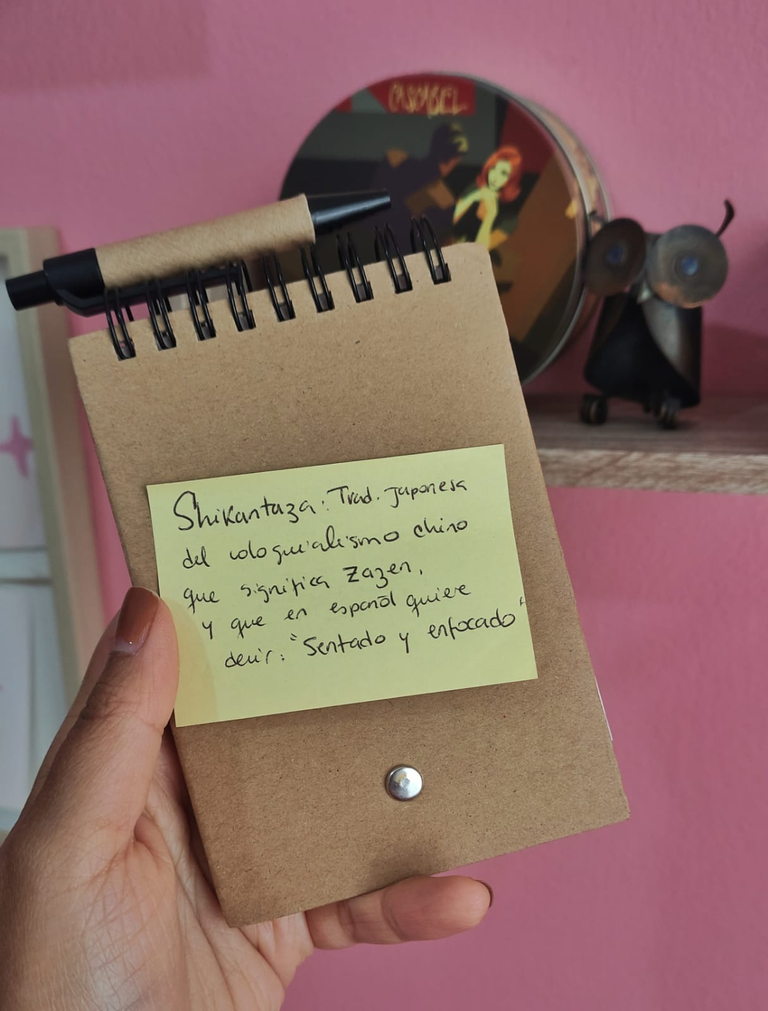 CASCABEL
Shikantaza: Trad. Japonesa
del coloquialismo chino
que significa Zazen,
y que en español quiere
decir: "Sentado y enfocado"